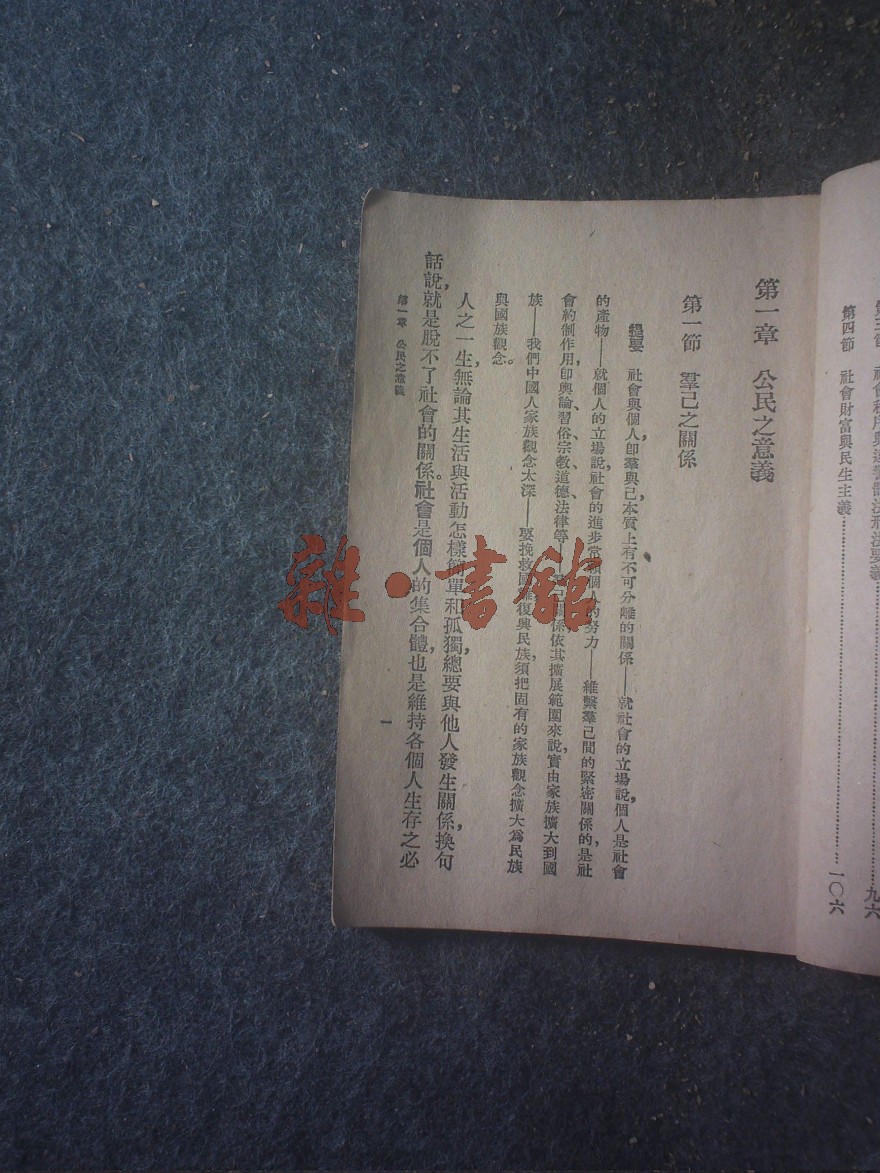 第四節　社會財富與民生主義……一〇六
第一章　公民之意義
第一節　羣己之關係
提要　社會與個人，卽羣與己，本質上有不可分離的關係——就社會的立場說，個人是社會
的產物——就個人的立場說，社會的進步常賴個人的努力——維繫羣己間的緊密關係的，是社
會約制作用，卽輿論、習俗、宗教、道德、法律等——係依其擴展範圍來說，實由家族擴大到國
族——我們中國人家族觀念太深——要挽救國難，復興民族，須把固有的家族觀念擴大爲民族
與國族觀念。
人之一生，無論其生活與活動怎樣簡單和孤獨，總要與他人發生關係，換句
話說，就是脫不了社會的關係。社會是個人的集合體，也是維持各個人生存之必
第一章　公民之意義
一
雜·書館